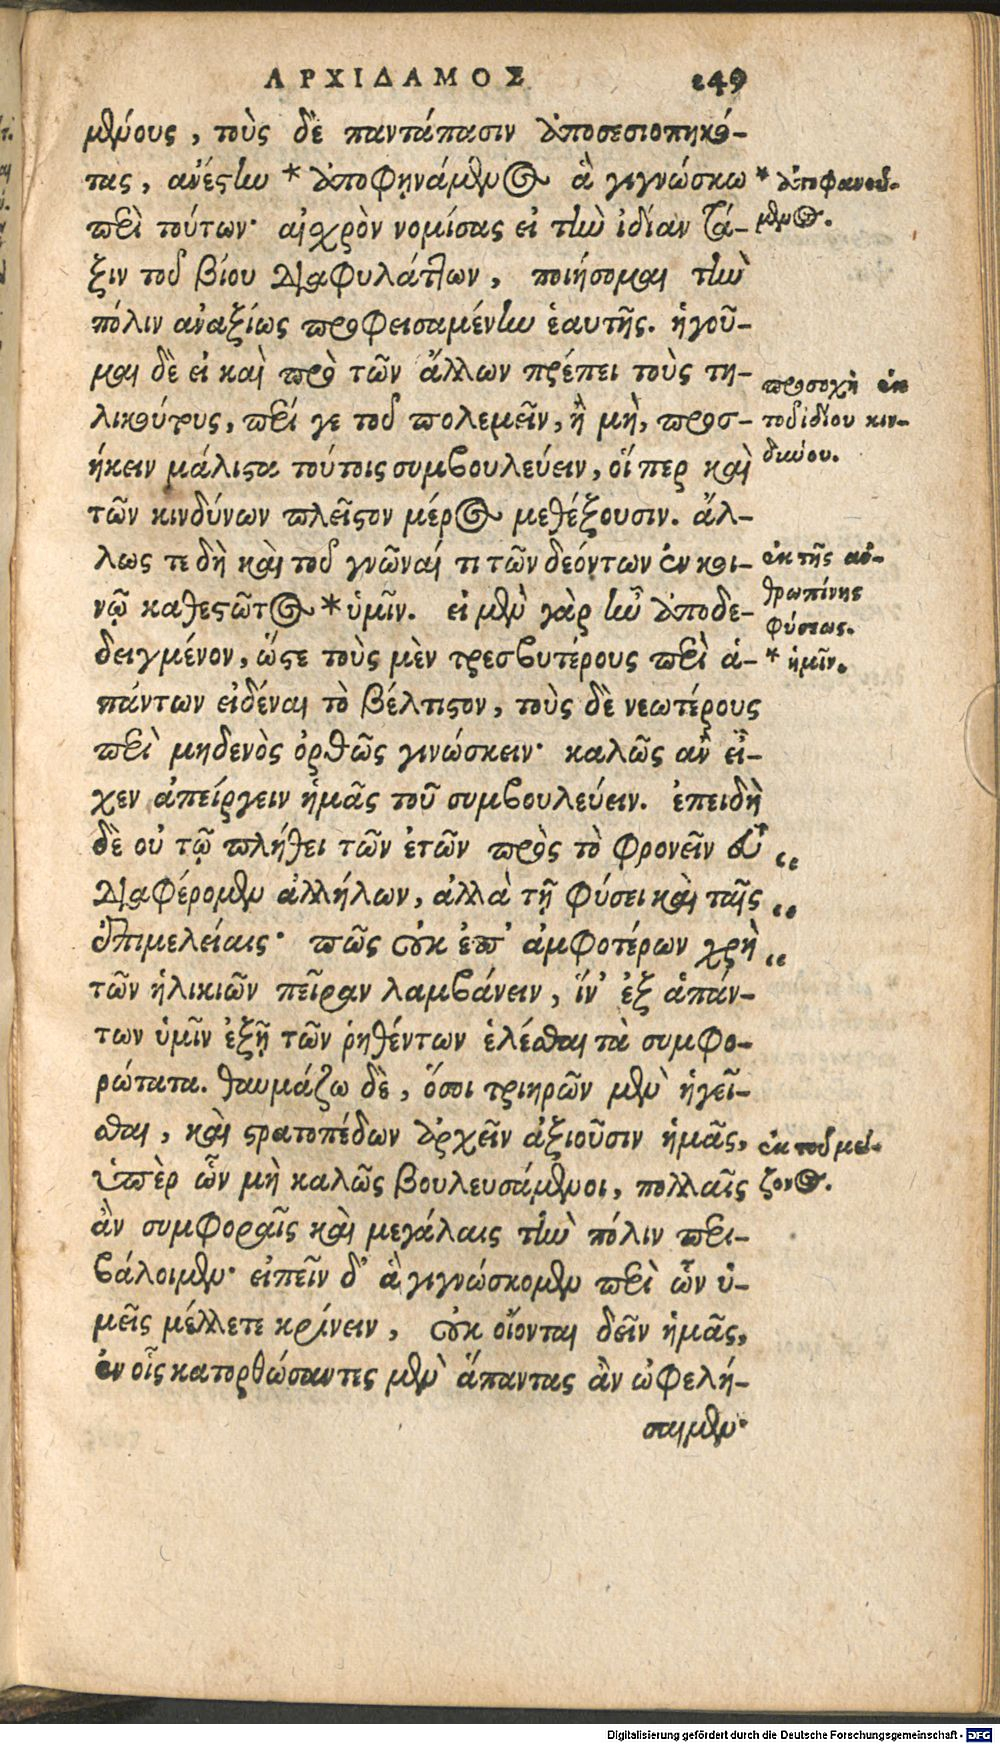 ΑΡΧΙΔΑΜΟΣ 249
μένους, τοὺς δὲ παντάπασιν ἀποσεσιοπηκό-
τας, ἀνέστην * ἀποφηνάμενος ἃ γιγνώσκω
περὶ τούτων· αἰσχρὸν νομίσας εἰ τὴν ἰδίαν τά-
ξιν τοῦ βίου διαφυλάττων, ποιήσομαι τὴν
πόλιν ἀναξίως προφεισαμένην ἑαυτῆς. ἡγοῦ-
μαι δὲ εἰ καὶ πρὸ τῶν ἄλλων πρέπει τοὺς τη-
λικούτους, περί γε τοῦ πολεμεῖν, ἢ μὴ, προσ-
ήκειν μάλιστα τούτοις συμβουλεύειν, οἵ περ καὶ
τῶν κινδύνων πλεῖστον μέρος μεθέξουσιν. ἄλ-
λως τε δὴ καὶ τοῦ γνῶναί τι τῶν δεόντων ἐν κοι-
νῷ καθεστῶτος * ὑμῖν. εἰ μὲν γὰρ ἦν ἀποδε-
δειγμένον, ὥστε τοὺς μὲν πρεσβυτέρους περὶ ἁ-
πάντων εἰδέναι τὸ βέλτιστον, τοὺς δὲ νεωτέρους
περὶ μηδενὸς ὀρθῶς γινώσκειν· καλῶς ἂν εἶ-
χεν ἀπείργειν ἡμᾶς τοῦ συμβουλεύειν. ἐπειδὴ
δὲ οὐ τῷ πλήθει τῶν ἐτῶν πρὸς τὸ φρονεῖν εὖ „
διαφέρομεν ἀλλήλων, ἀλλὰ τῇ φύσει καὶ ταῖς „
ἐπιμελείαις· πῶς οὐκ ἐπ' ἀμφοτέρων χρὴ „
τῶν ἡλικιῶν πεῖραν λαμβάνειν, ἵν' ἐξ ἁπάν-
των ὑμῖν ἐξῇ τῶν ῥηθέντων ἑλέσθαι τὰ συμφο-
ρώτατα. θαυμάζω δὲ, ὅσοι τριηρῶν μὲν ἡγεῖ-
σθαι, καὶ στρατοπέδων ἀρχεῖν ἀξιοῦσιν ἡμᾶς,
ὑπὲρ ὧν μὴ καλῶς βουλευσάμενοι, πολλαῖς
ἂν συμφοραῖς καὶ μεγάλαις τὴν πόλιν περι-
βάλοιμεν· εἰπεῖν δ' ἃ γιγνώσκομεν περὶ ὧν ὑ-
μεῖς μέλλετε κρίνειν, οὐκ οἴονται δεῖν ἡμᾶς,
ἐν οἷς κατορθώσαντες μὲν ἅπαντας ἂν ὠφελή-
σαιμεν·
* ἀποφανού-
μενος.
προσοχὴ ἐκ
τοῦ ἰδίου κιν-
δύνου.
ἐκ τῆς ἀν-
θρωπίνης
φύσεως.
* ἡμῖν.
ἐκ τοῦ μεί-
ζονος.
Digitalisierung gefördert durch die Deutsche Forschungsgemeinschaft - DFG